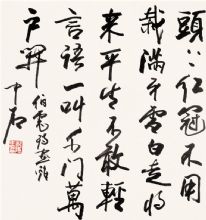 頭上紅冠不用
裁滿身雪白走將
來平生不敢輕
言語一叫千門萬
戶開 伯虎詩畫雞
中石